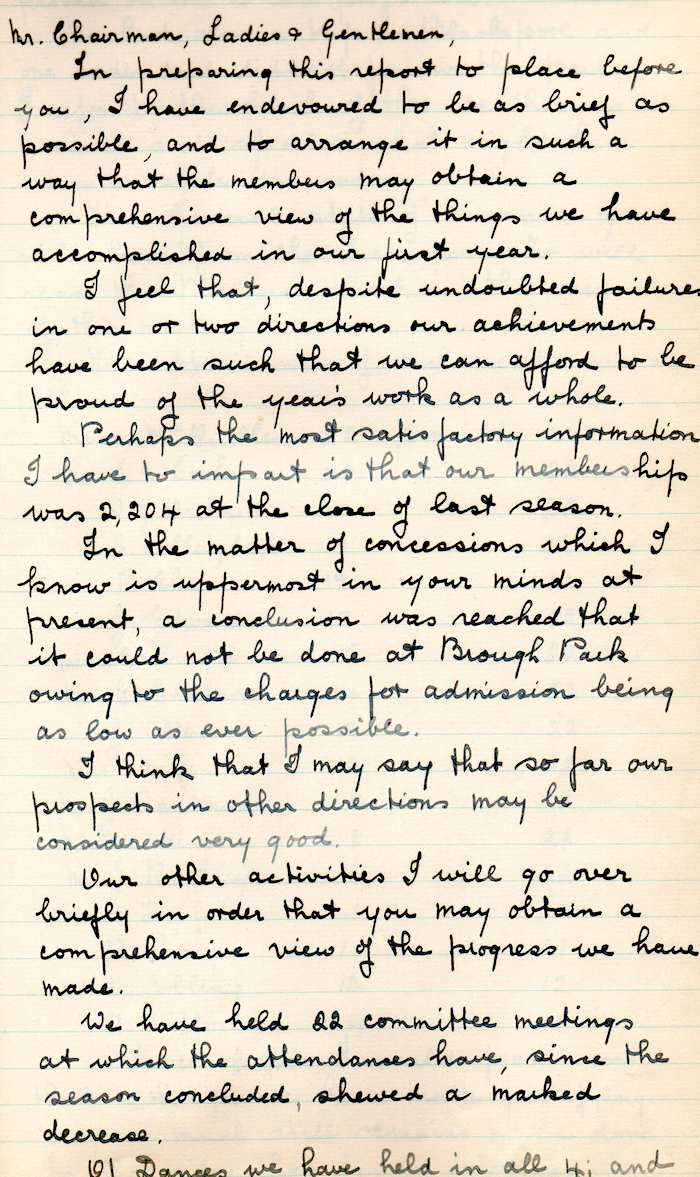 Mr. Chairman, Ladies & Gentlemen,
In preparing this report to place before
you, I have endevoured to be as brief as
possible, and to arrange it in such a
way that the members may obtain a
comprehensive view of the things we have
accomplished in our first year.
I feel that, despite undoubted failures
in one or two directions our achievements
have been such that we can afford to be
proud of the year's work as a whole.
Perhaps the most satisfactory information
I have to impart is that our membership
was 2,204 at the close of last season.
In the matter of concessions which I
know is uppermost in your minds at
present, a conclusion was reached that
it could not be done at Brough Park
owing to the charges for admission being
as low as ever possible.
I think that I may say that so far our
prospects in other directions may be
considered very good.
Our other activities I will go over
briefly in order that you may obtain a
comprehensive view of the progress we have
made.
We have held 22 committee meetings
at which the attendances have, since the
season concluded, shewed a marked
decrease.
Of Dances we have held in all 4; and